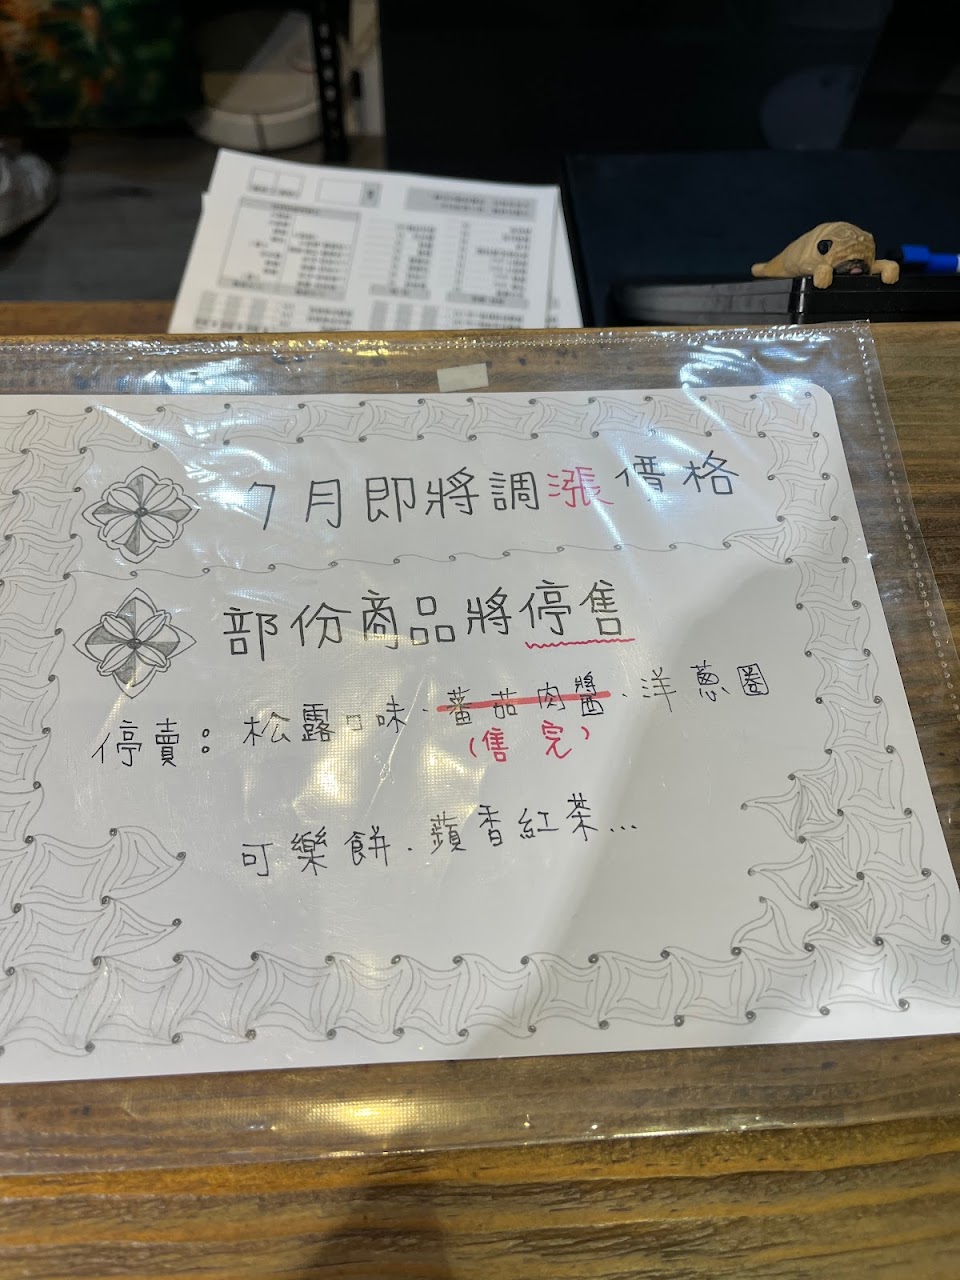 7月即將調漲價格
部份商品將停售
停賣：松露口味．蕃茄肉醬．洋蔥圈
(售完)
可樂餅．蘋香紅茶…